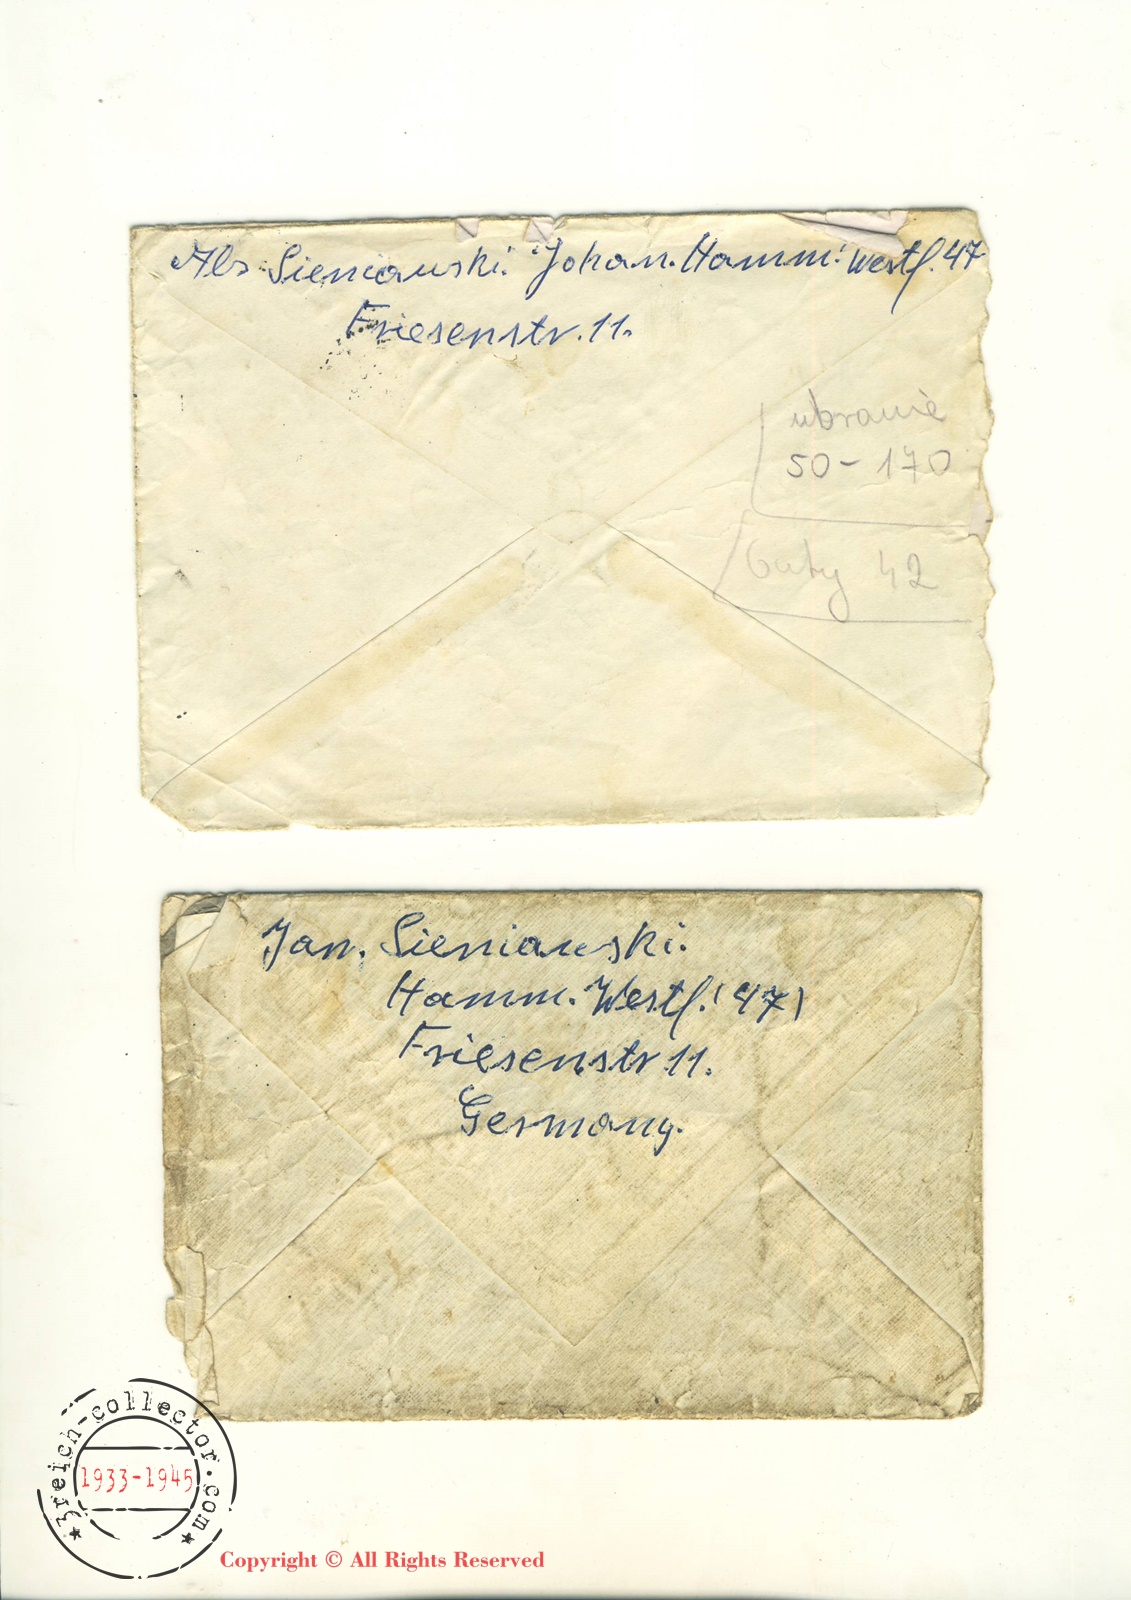 Abs. Sieniawski. Johan. Hamm: Westf. 47
Friesenstr. 11.
ubranie
50 - 170
buty 42
Jan. Sieniawski.
Hamm. Westf. (47)
Friesenstr 11.
Germany.
3reich-collector.com
1933-1945
Copyright © All Rights Reserved